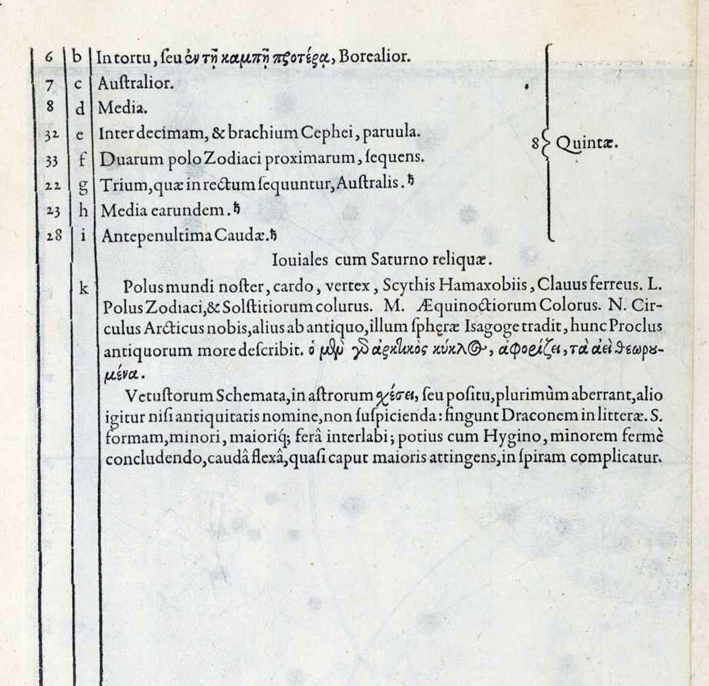 6 b In tortu, ſeu ἐν τῇ καμπῇ προτέρᾳ, Borealior.
7 c Auſtralior.
8 d Media.
32 e Inter decimam, & brachium Cephei, paruula.
33 f Duarum polo Zodiaci proximarum, ſequens.
22 g Trium, quæ in rectum ſequuntur, Auſtralis. ♄
23 h Media earundem. ♄
28 i Antepenultima Caudæ. ♄
8 Quintæ.
Iouiales cum Saturno reliquæ.
k Polus mundi noſter, cardo, vertex, Scythis Hamaxobiis, Clauus ferreus. L.
Polus Zodiaci, & Solſtitiorum colurus. M. Æquinoctiorum Colorus. N. Cir-
culus Arcticus nobis, alius ab antiquo, illum ſphęræ Iſagoge tradit, hunc Proclus
antiquorum more deſcribit. ὁ μὲν γὸ ἀρκτικὸς κύκλος, ἀφορίζει, τὰ ἀεὶ θεωρου-
μένα.
Vetuſtorum Schemata, in aſtrorum χέσει, ſeu poſitu, plurimùm aberrant, alio
igitur niſi antiquitatis nomine, non ſuſpicienda: fingunt Draconem in litteræ. S.
formam, minori, maioriq́; ferâ interlabi; potius cum Hygino, minorem fermè
concludendo, caudâ flexâ, quaſi caput maioris attingens, in ſpiram complicatur.